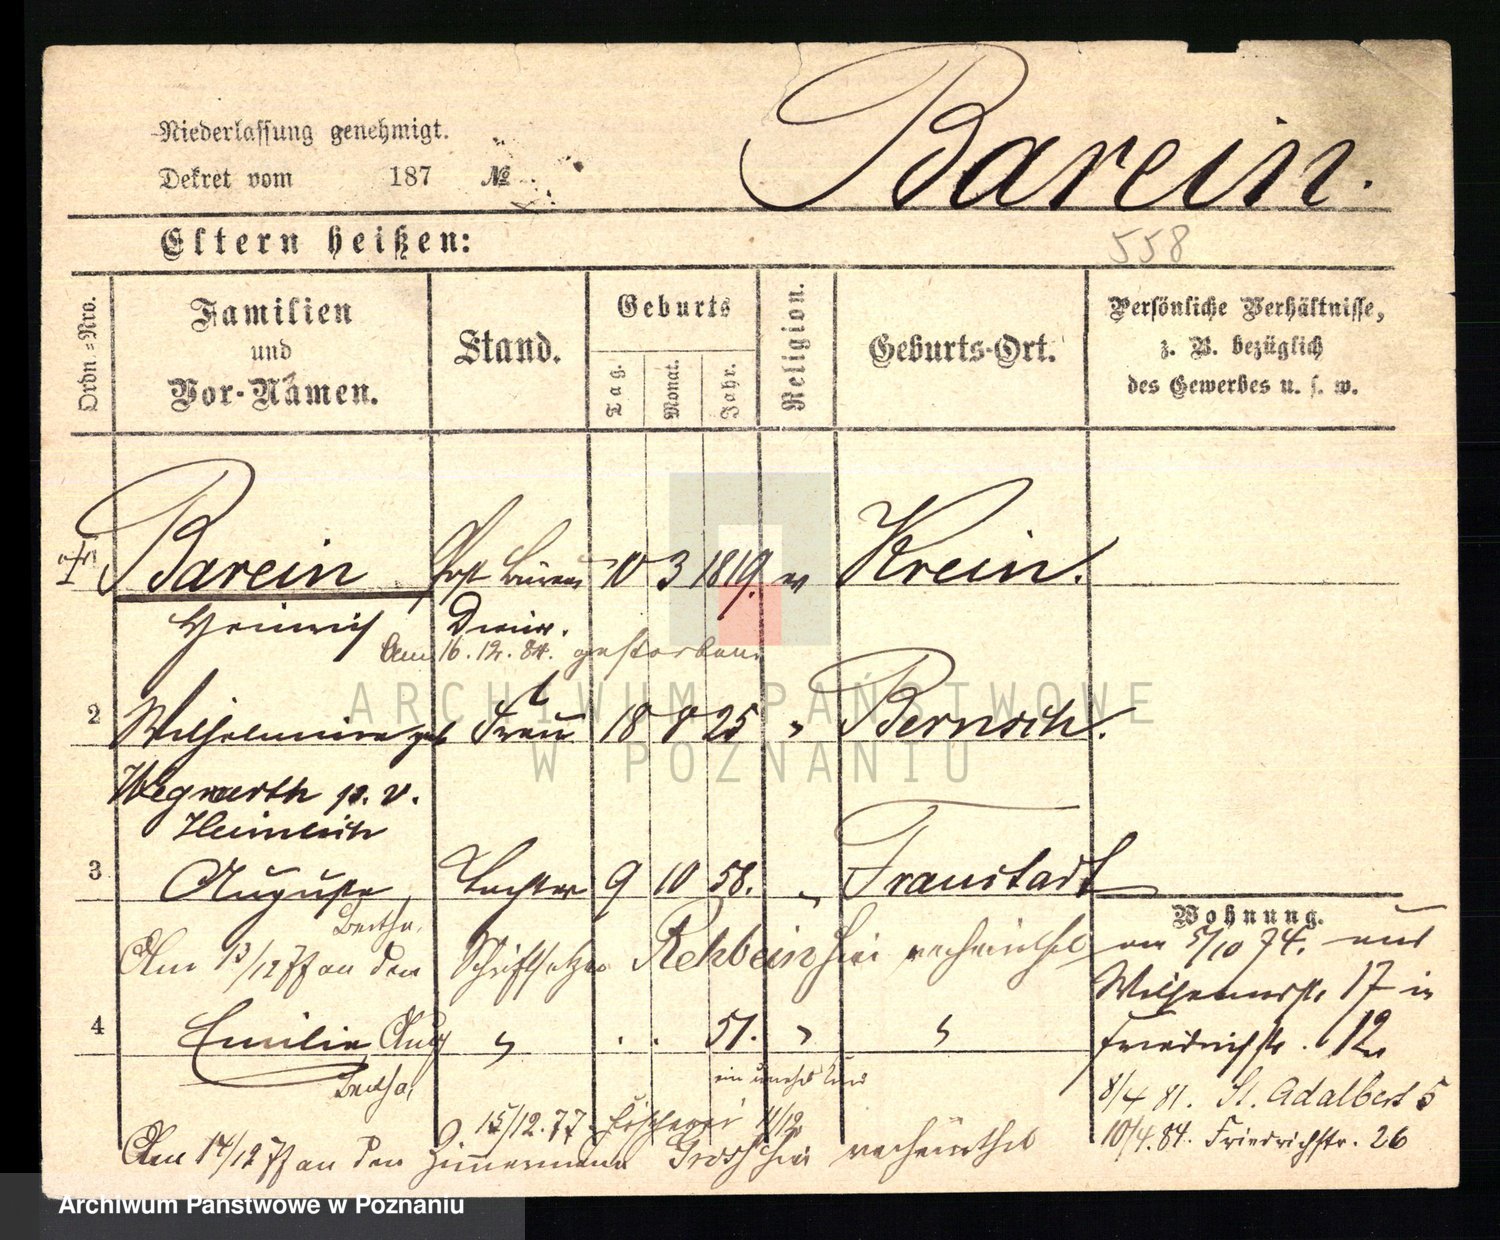 Niederlassung genehmigt.
Dekret vom 187 №
Barein.
Eltern heißen:
558
Ordn.-Nro.
Familien
und
Vor-Namen.
Stand.
Geburts
Tag.
Monat.
Jahr.
Religion.
Geburts-Ort.
Persönliche Verhältnisse,
z. B. bezüglich
des Gewerbes u. s. w.
Barein Post Büreau 10 3 1819. ev Krein.
Heinrich Diener.
Am 16.12.84. gestorben.
2 Wilhelmine geb Frau 18 8 25 " Bernsch.
Wegwerth p. v.
Heinrich
3 Auguste Tochter 9 10 58. " Fraustadt
Bertha.
Wohnung.
Am 13/12 77 an den Schriftsetzer Rehbein hier verheirathet
am 5/10 74. aus
Wilhelmstr. 17 in
4 Emilie Aug " . . 51. " "
Friedrichstr. 12
Bertha,
ein unehel Kind
8/4 81. St. Adalbert 5
15/12.77. 11/12
Am 14/12 77 an den Zimmermann Grosch hier verheirathet
10/4.84. Friedrichstr. 26
ARCHIWUM PAŃSTWOWE
W POZNANIU
Archiwum Państwowe w Poznaniu